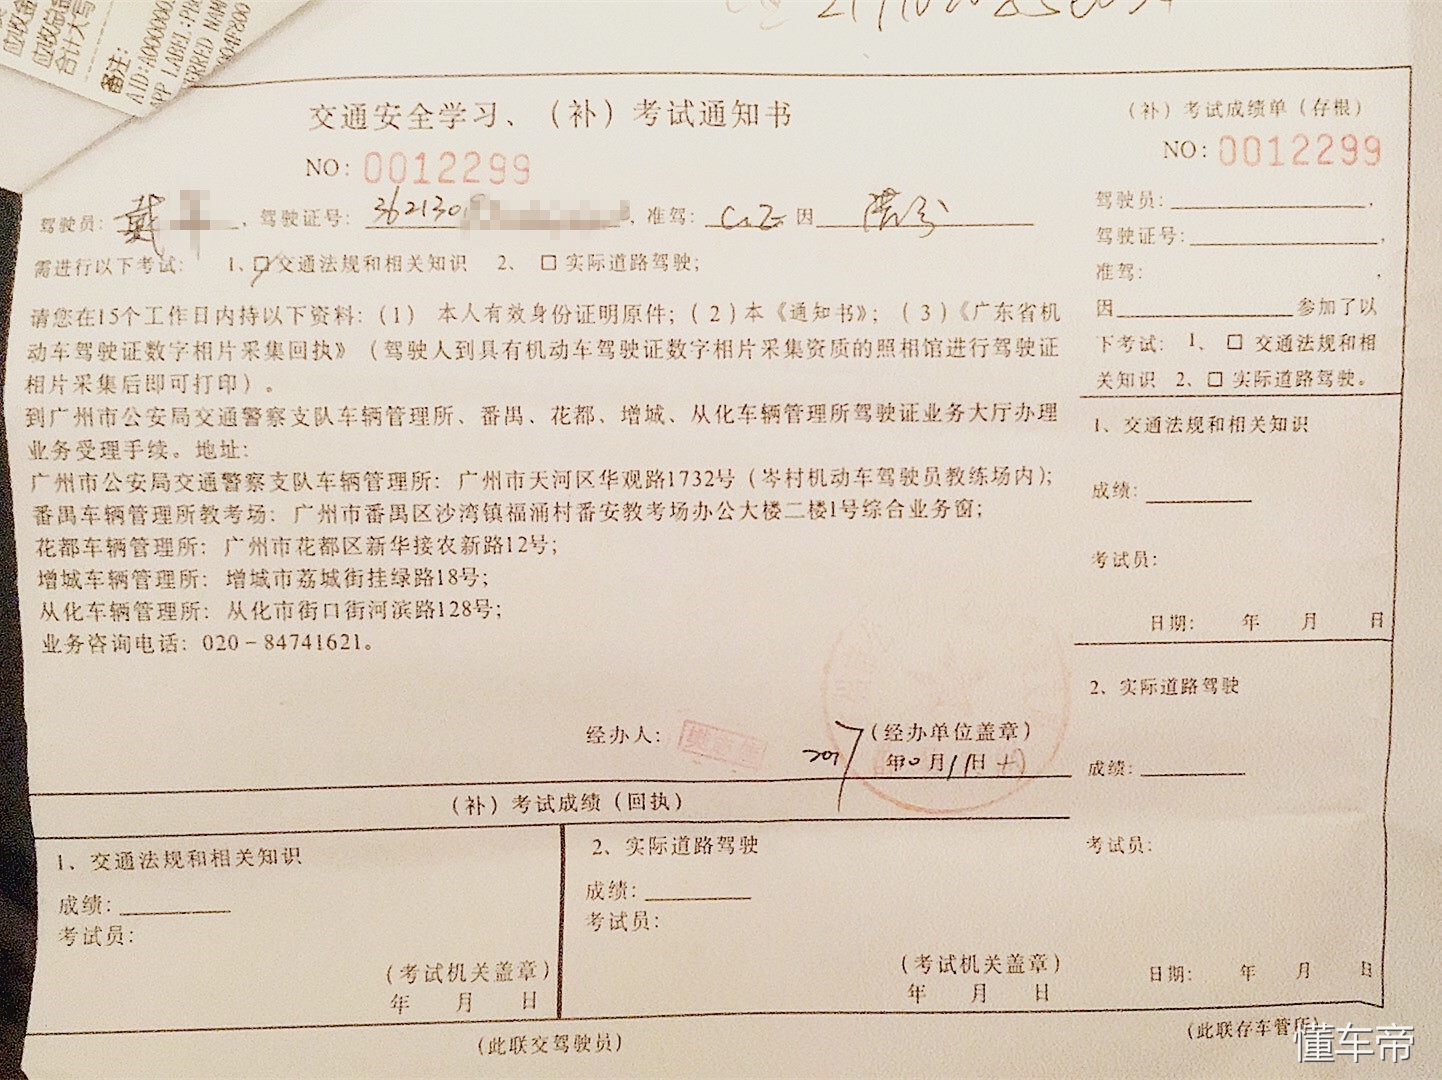 应收金
应收总金
合计大写
备注:
交通安全学习、（补）考试通知书
NO: 0012299
驾驶员: 戴, 驾驶证号: 362130, 准驾: C1E 因 满分
需进行以下考试: 1、☑交通法规和相关知识 2、□实际道路驾驶;
请您在15个工作日内持以下资料:（1） 本人有效身份证明原件;（2）本《通知书》;（3）《广东省机
动车驾驶证数字相片采集回执》（驾驶人到具有机动车驾驶证数字相片采集资质的照相馆进行驾驶证
相片采集后即可打印）。
到广州市公安局交通警察支队车辆管理所、番禺、花都、增城、从化车辆管理所驾驶证业务大厅办理
业务受理手续。地址:
广州市公安局交通警察支队车辆管理所: 广州市天河区华观路1732号（岑村机动车驾驶员教练场内）;
番禺车辆管理所教考场: 广州市番禺区沙湾镇福涌村番安教考场办公大楼二楼1号综合业务窗;
花都车辆管理所: 广州市花都区新华接农新路12号;
增城车辆管理所: 增城市荔城街挂绿路18号;
从化车辆管理所: 从化市街口街河滨路128号;
业务咨询电话: 020－84741621。
经办人:
（经办单位盖章）
2017年10月11日
（补）考试成绩（回执）
1、交通法规和相关知识
成绩:
考试员:
（考试机关盖章）
年 月 日
2、实际道路驾驶
成绩:
考试员:
（考试机关盖章）
年 月 日
（此联交驾驶员）
（补）考试成绩单（存根）
NO: 0012299
驾驶员: .
驾驶证号: ,
准驾: ,
因 参加了以
下考试: 1、□ 交通法规和相
关知识 2、□ 实际道路驾驶。
1、交通法规和相关知识
成绩:
考试员:
日期: 年 月 日
2、实际道路驾驶
成绩:
考试员:
日期: 年 月 日
（此联存车管所）
懂车帝